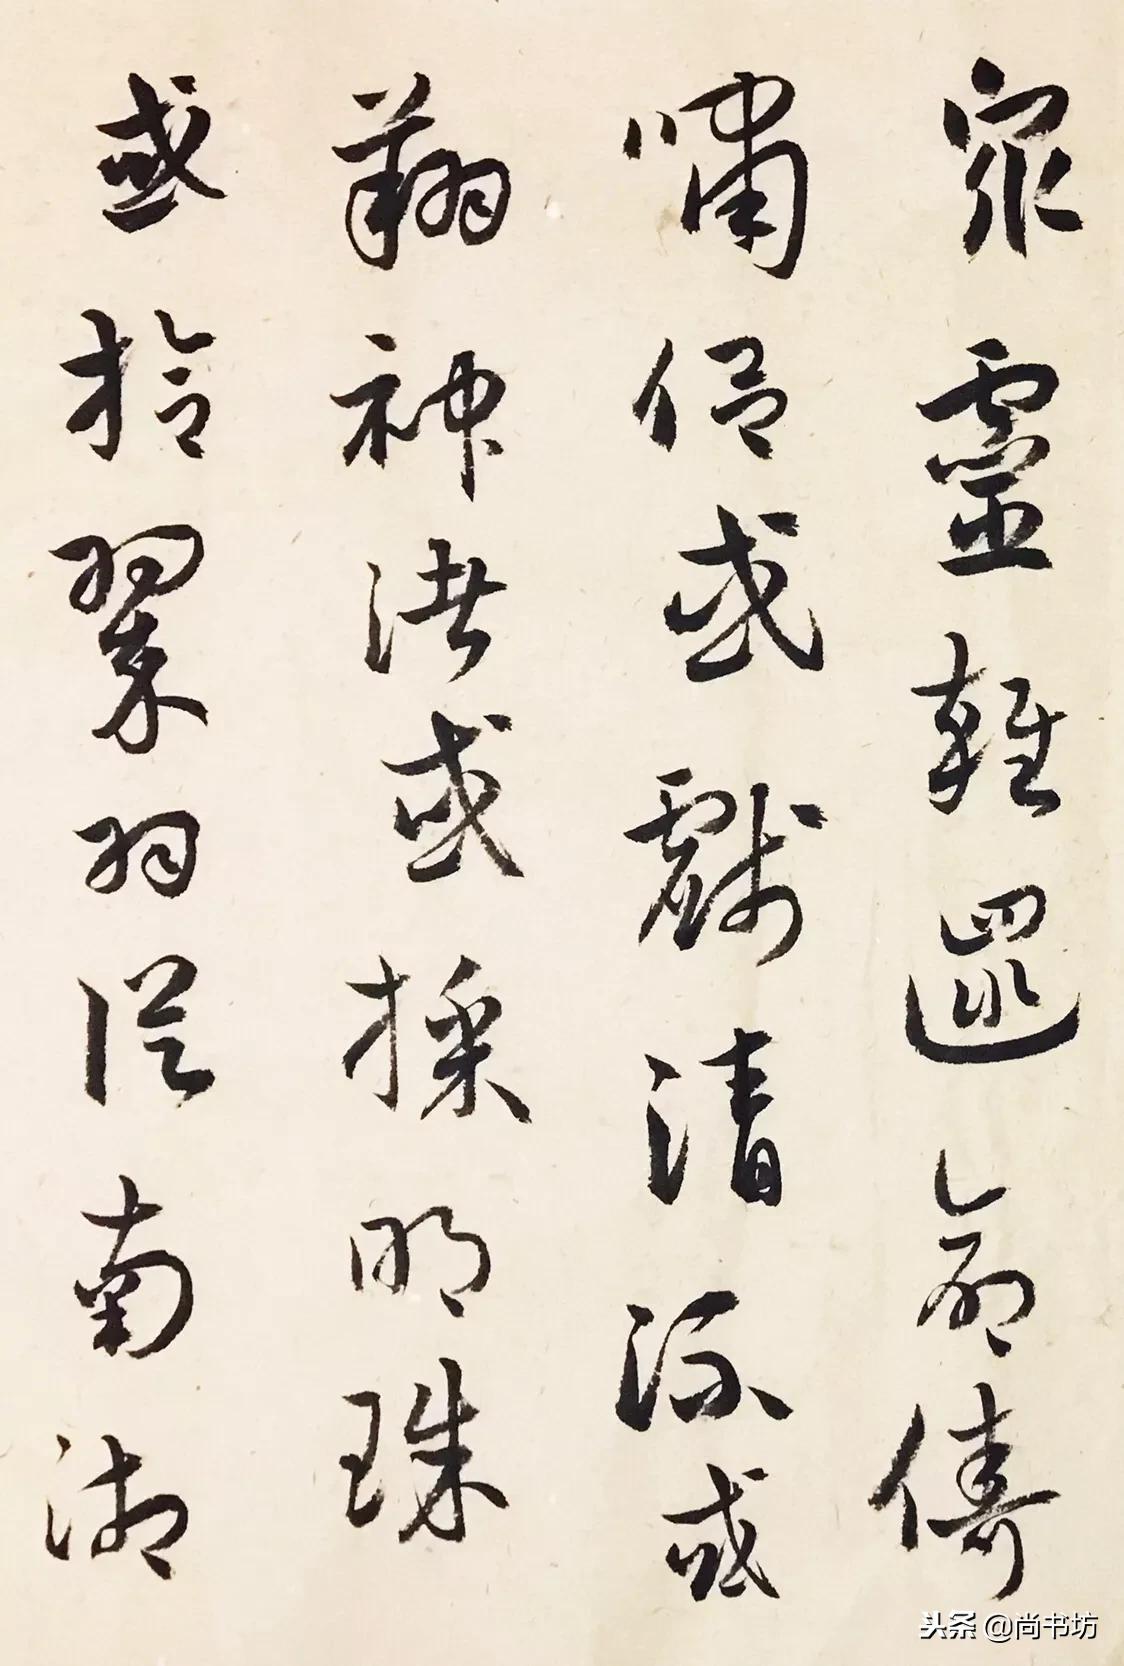 眾靈雜遝命儔
嘯侶或戲清流或
翔神渚或採明珠
或拾翠羽從南湘
头条 @尚书坊